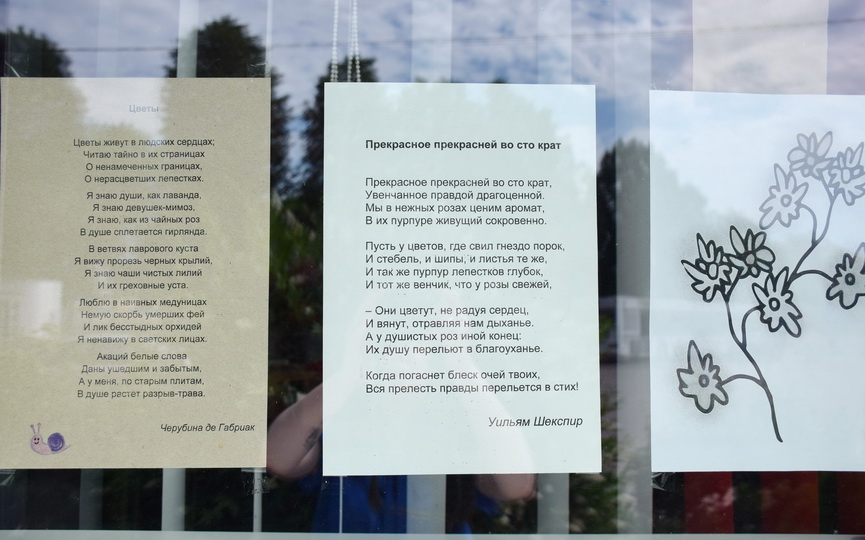 Цветы
Цветы живут в людских сердцах;
Читаю тайно в их страницах
О ненамеченных границах,
О нерасцветших лепестках.
Я знаю души, как лаванда,
Я знаю девушек-мимоз,
Я знаю, как из чайных роз
В душе сплетается гирлянда.
В ветвях лаврового куста
Я вижу прорезь черных крылий,
Я знаю чаши чистых лилий
И их греховные уста.
Люблю в наивных медуницах
Немую скорбь умерших фей
И лик бесстыдных орхидей
Я ненавижу в светских лицах.
Акаций белые слова
Даны ушедшим и забытым,
А у меня, по старым плитам,
В душе растет разрыв-трава.
Черубина де Габриак
Прекрасное прекрасней во сто крат
Прекрасное прекрасней во сто крат,
Увенчанное правдой драгоценной.
Мы в нежных розах ценим аромат,
В их пурпуре живущий сокровенно.
Пусть у цветов, где свил гнездо порок,
И стебель, и шипы, и листья те же,
И так же пурпур лепестков глубок,
И тот же венчик, что у розы свежей,
– Они цветут, не радуя сердец,
И вянут, отравляя нам дыханье.
А у душистых роз иной конец:
Их душу перельют в благоуханье.
Когда погаснет блеск очей твоих,
Вся прелесть правды перельется в стих!
Уильям Шекспир